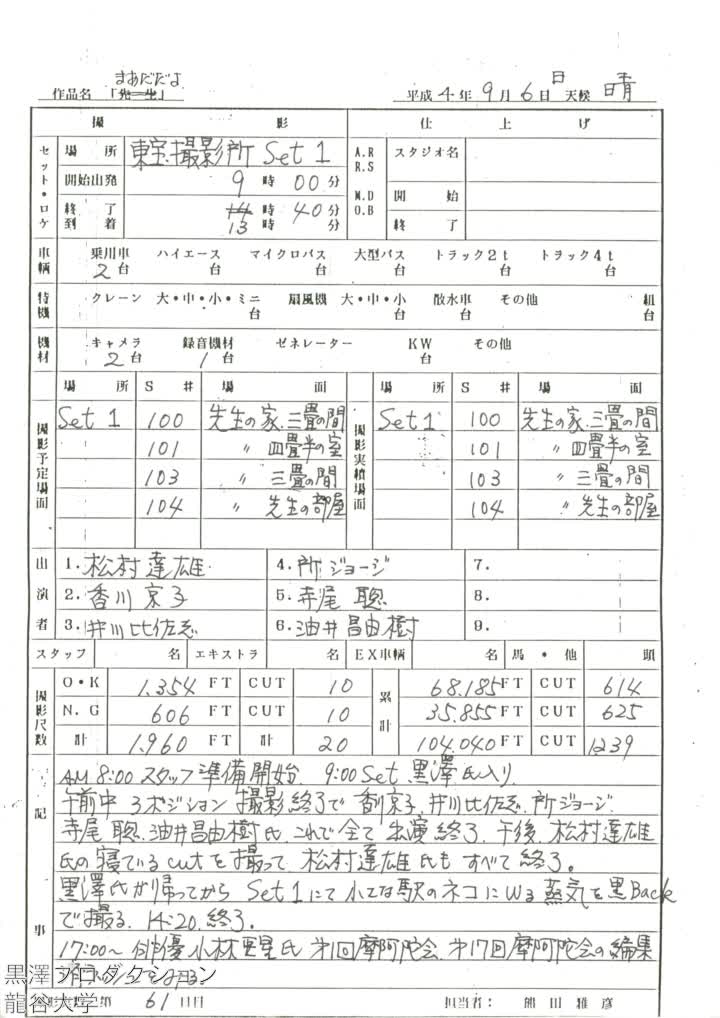 まあだだよ
作品名 「先生」 平成 4 年 9 月 6 日 日 天候 晴
撮 影 仕 上 げ
セット・ロケ 場 所 東宝撮影所 Set 1 A.R R.S スタジオ名
開始出発 9 時 00 分 M.D O.B 開 始
終 了 到 着 14 時 40 分 13 時 分 終 了
車輌 乗用車 2 台 ハイエース 台 マイクロバス 台 大型バス 台 トラック2t 台 トラック4t 台
特機 クレーン 大・中・小・ミニ 台 扇風機 大・中・小 台 散水車 台 その他 組 台
機材 キャメラ 2 台 録音機材 1 台 ゼネレーター KW 台 その他
場 所 S # 場 面 場 所 S # 場 面
撮影予定場面 撮影実績場面
Set 1 100 先生の家.三畳の間 Set 1 100 先生の家.三畳の間
101 〃 四畳半の室 101 〃 四畳半の室
103 〃 三畳の間 103 〃 三畳の間
104 〃 先生の部屋 104 〃 先生の部屋
出演者 1. 松村達雄 4. 所ジョージ 7.
2. 香川京子 5. 寺尾 聰 8.
3. 井川比佐志 6. 油井昌由樹 9.
スタッフ 名 エキストラ 名 EX車輌 名 馬・他 頭
撮影尺数 O・K 1.354 FT CUT 10 累計 68.185 FT CUT 614
N.G 606 FT CUT 10 35.855 FT CUT 625
計 1.960 FT 計 20 104.040 FT CUT 1239
記事
AM 8:00 スタッフ準備開始. 9:00 Set 黒澤氏入り
午前中 3ポジション 撮影終了で 香川京子.井川比佐志.所ジョージ.
寺尾 聰.油井昌由樹氏.これで全て 出演終了. 午後.松村達雄
氏の寝ているcutを撮って 松村達雄氏も すべて終了。
黒澤氏が帰ってから Set 1にて 小さな駅のネコにWる蒸気を黒Back
で撮る. 14:20.終了.
17:00〜 俳優 小林 氏 第1回摩阿陀会.第17回摩阿陀会の編集
61 日目 担当者: 熊田雅彦
黒澤プロダクション
龍谷大学